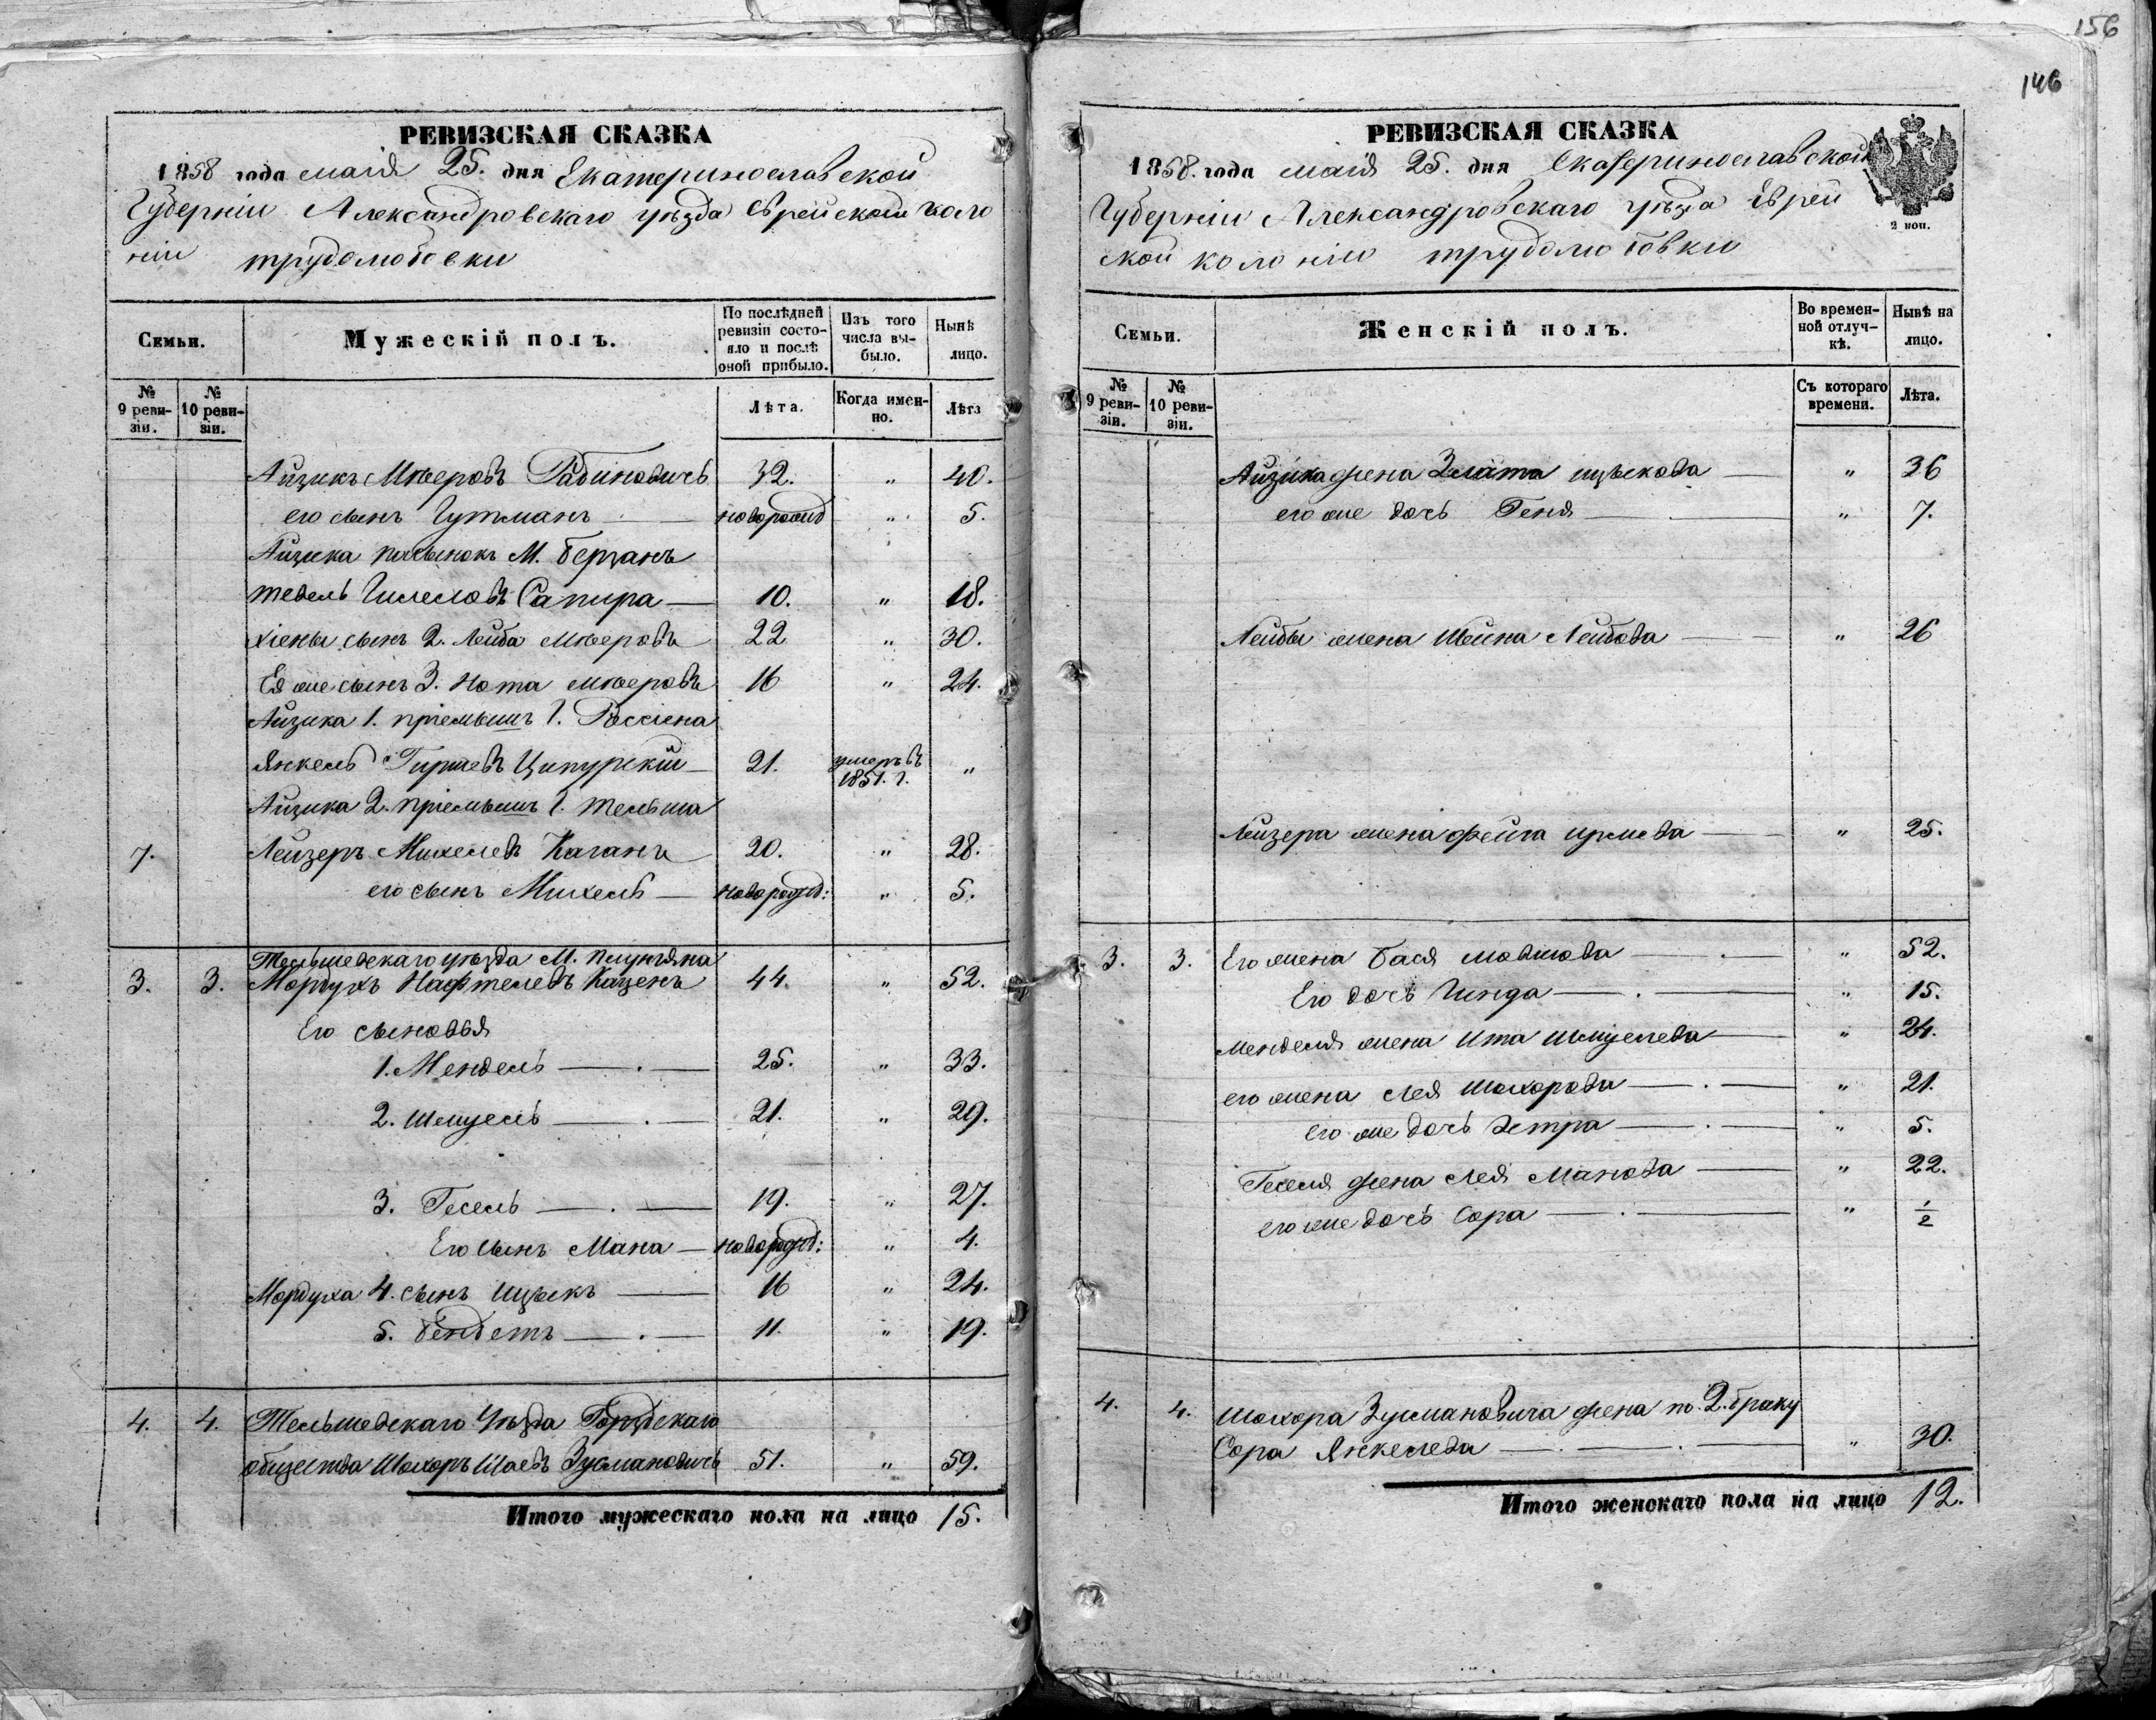 156
146
РЕВИЗСКАЯ СКАЗКА
1858 года маія 25. дня Екатеринославской
Губерніи Александровскаго уѣзда Еврейской коло
ніи трудолюбовки
Семьи.
Мужескій полъ.
По послѣдней ревизіи состояло и послѣ оной прибыло.
Изъ того числа выбыло.
Нынѣ лицо.
№ 9 ревизіи.
№ 10 ревизіи.
Лѣта.
Когда именно.
Лѣта
Айзикъ Мееровъ Рабиновичъ 32. " 40.
его сынъ Гутманъ новорожд " 5.
Айзика пасынокъ М. Бержанъ
Тевель Гилеловъ Сапира — 10. " 18.
Хіены сынъ 2. Лейба Мееровъ 22 " 30.
Ея же сынъ 3. Нота Мееровъ 16 " 24.
Айзика 1. пріемышъ Г. Россіена
Янкель Гиршевъ Ципурскій 21. умеръ въ 1851. г. "
Айзика 2. пріемышъ Г. Тельша
7. Лейзеръ Михелевъ Каганъ 20. " 28.
его сынъ Михель — новорожд: " 5.
Тельшевскаго уѣзда М. Плунгяна
3. 3. Мордухъ Нафтелевъ Каценъ 44. " 52.
Его сыновья
1. Мендель — . — 25. " 33.
2. Шмуель — . — 21. " 29.
3. Гесель — . — 19. " 27.
Его сынъ Мана — новорожд: " 4.
Мордуха 4. сынъ Ицыкъ — 16 " 24.
5. Бендетъ — . — 11. " 19.
4. 4. Тельшевскаго Уѣзда Горждскаго
общества Шахоръ Шаевъ Зусмановичъ 51. " 59.
Итого мужескаго пола на лицо 15.
РЕВИЗСКАЯ СКАЗКА
1858. года маія 25. дня Екатеринославской
Губерніи Александровскаго уѣзда Еврей
ской колоніи трудолюбовки
2 коп.
Семьи.
Женскій полъ.
Во временной отлучкѣ.
Нынѣ на лицо.
№ 9 ревизіи.
№ 10 ревизіи.
Съ котораго времени.
Лѣта.
Айзика жена Злата Ицькова — " 36
его же дочь Геня — " 7.
Лейбы жена Шейна Лейбова — " 26
Лейзера жена Фейга — " 25.
3. 3. Его жена Бася Мовшова — . — " 52.
Его дочь Гинда — . — " 15.
Менделя жена Ита Шмуелева — " 24.
его жена Лея Шахорова — . — " 21.
его же дочь Эстра — . — " 5.
Геселя жена Лея Манова — " 22.
его же дочь Сора — . — " 1/2
4. 4. Шахора Зусмановича жена по 2. браку
Сора Янкелева — . — . — " 30.
Итого женскаго пола на лицо 12.